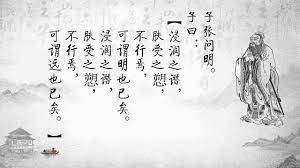 子张问明。
子曰：
【浸润之谮，
肤受之愬，
不行焉，
可谓明也已矣。
浸润之谮，
肤受之愬，
不行焉，
可谓远也已矣。】